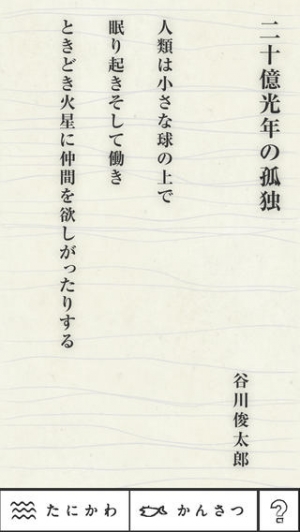 二十億光年の孤独
谷川俊太郎
人類は小さな球の上で
眠り起きそして働き
ときどき火星に仲間を欲しがったりする
たにかわ
かんさつ
?